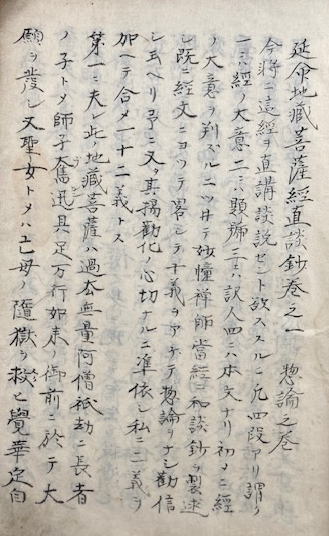 延命地藏菩薩經直談鈔卷之一　惣論之卷
今將ニ這經ヲ直講談説ゼント欲スルニ凡四段アリ謂ク
一ニハ經ノ大意二ニハ題號三ニハ訳人四ニハ本文ナリ初メニ經
ノ大意ヲ判ズルニツイテ妙幢禅師當經ニ和談鈔ヲ製述
シ既ニ經文ニヨツテ畧シテ十義ヲアゲテ惣論ヲナシ勸信
シ玉ヘリ予ニ又タ其揚勸化ノ心切ナルニ準依シ私ニ二義ヲ
加ヘテ合メ一十二義トス
第一ニ夫レ此ノ地藏菩薩ハ過去無量阿僧祇劫ニ長者
ノ子トメ師子奮迅具足万行如来ノ御前ニ於テ大
願ヲ發シ又聖女トメハ亡母ノ墮獄ヲ救ヒ覺華定自